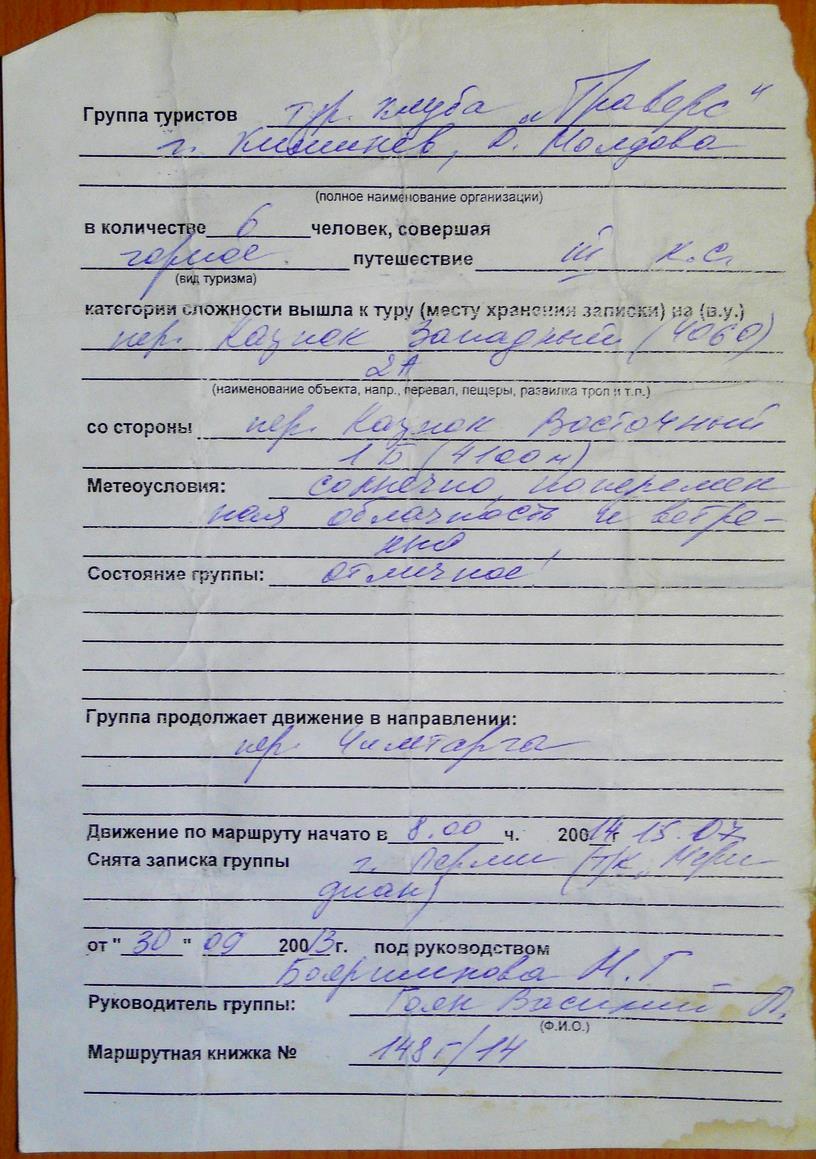 Группа туристов тур. клуба „Траверс"
г. Кишинев, Р. Молдова
(полное наименование организации)
в количестве 6 человек, совершая
горное путешествие III к.с.
(вид туризма)
категории сложности вышла к туру (месту хранения записки) на (в.у.)
пер. Казнок Западный (4060)
2А
(наименование объекта, напр., перевал, пещеры, развилка троп и т.п.)
со стороны пер. Казнок Восточный
1Б (4100 м)
Метеоусловия: солнечно, поперемен
ная облачность и ветре-
но
Состояние группы: отличное!
Группа продолжает движение в направлении:
пер. Чимтарга
Движение по маршруту начато в 8.00 ч. 20014г 15.07
Снята записка группы г. Перми (т/к „Мери
диан)
от "30" 09 20013г. под руководством
Бояршинова М.Г.
Руководитель группы: Гоян Василий П.
(Ф.И.О.)
Маршрутная книжка № 148г/14